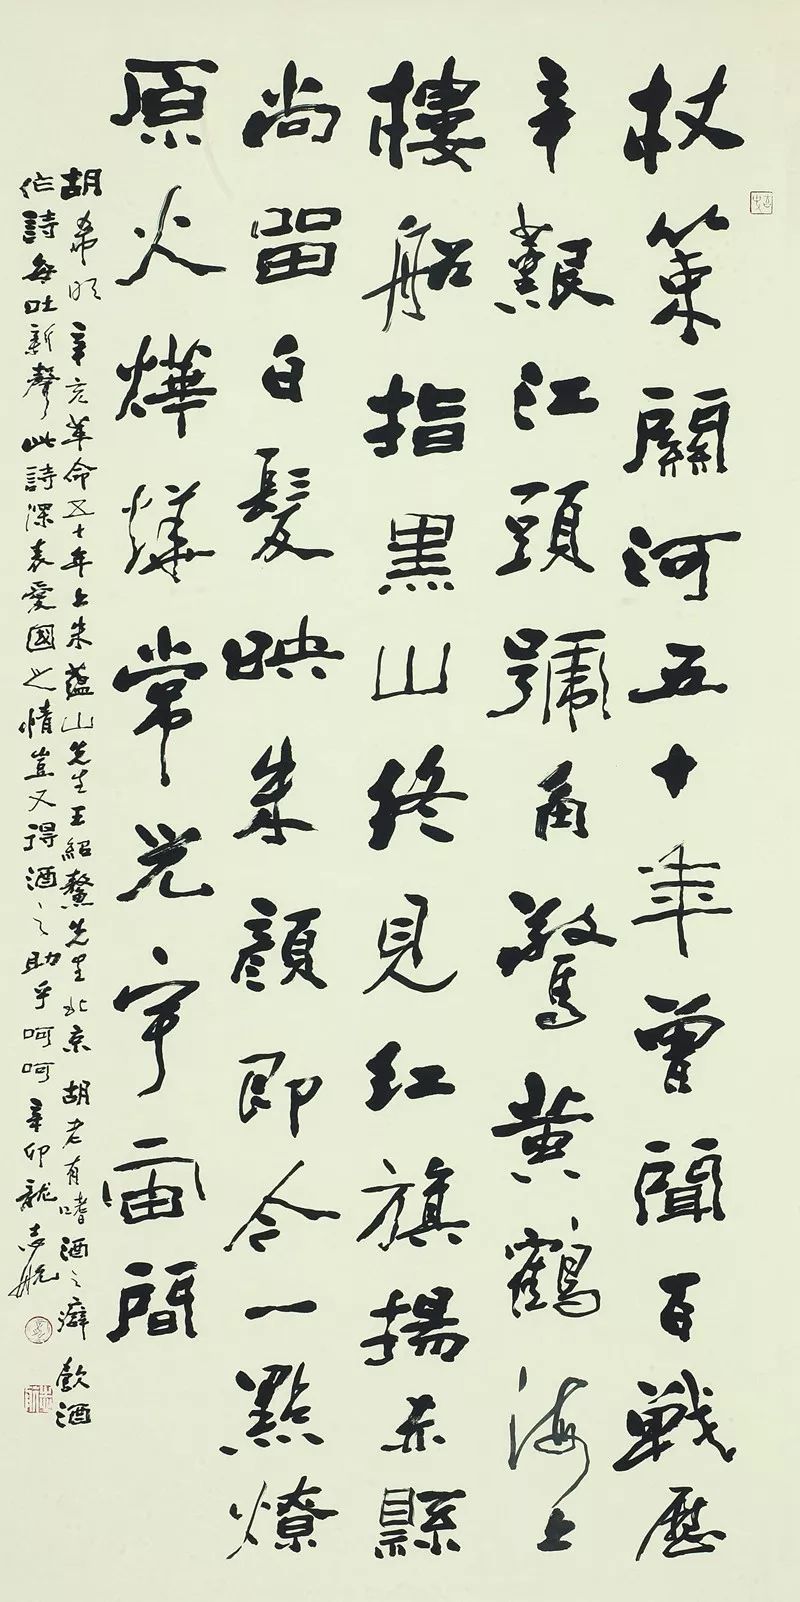 杖策關河五十年曾聞百戰歷
辛艱江頭號角驚黃鶴海上
樓船指黑山終見紅旗揚赤縣
尚留白髮映朱顏即今一點燎
原火燁燁常光宇宙間
胡希明辛亥革命五十年上朱蘊山先生王紹鏊先生北京胡老有嗜酒之癖飲酒
作詩每吐新聲此詩深表愛國之情豈又得酒之助乎呵呵辛卯龍志航